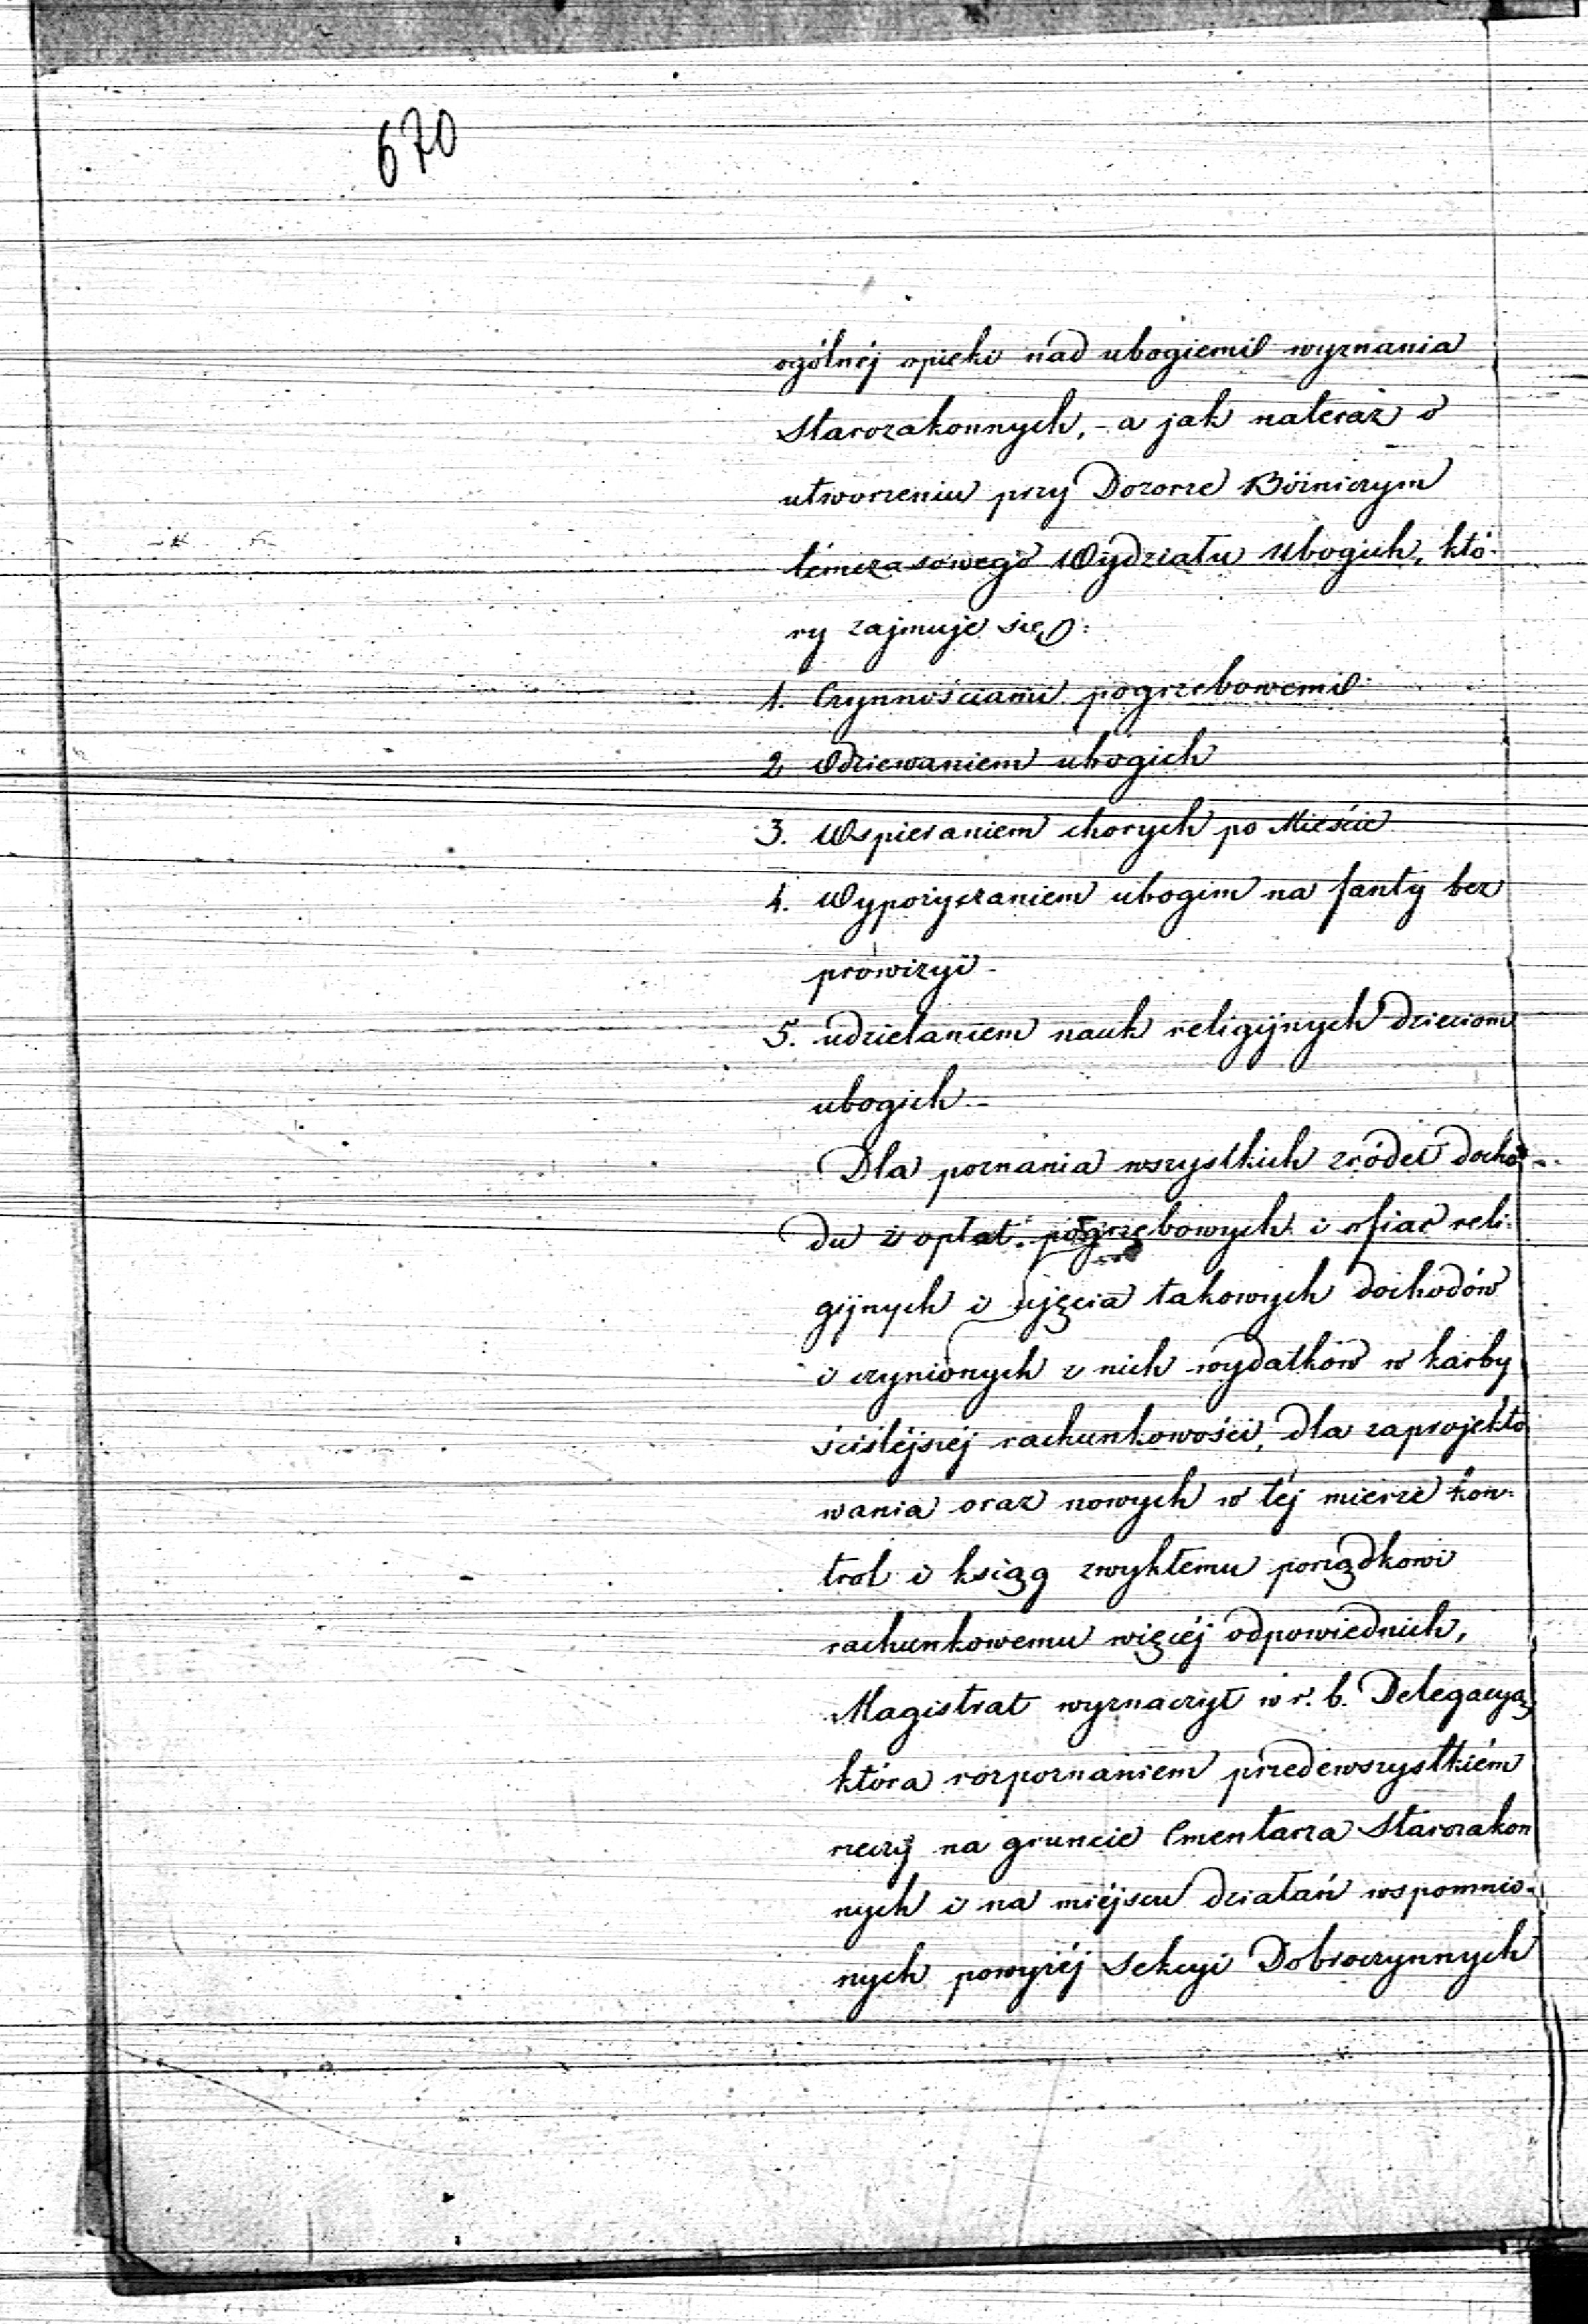 670
ogólnéj opieki nad ubogiemi wyznania
Starozakonnych, - a jak nateraz o
utworzeniu przy Dozorze Bóżniczym
témczasowego Wydziału Ubogich, któ-
ry zajmuje się:
1. Czynnościami pogrzebowemi
2 Odziewaniem ubogich
3. Wspieraniem chorych po Mieście
4. Wypożyczaniem ubogim na fanty bez
prowizyi -
5. udzielaniem nauk religijnych dzieciom
ubogich. -
Dla poznania wszystkich źródeł docho-
du z opłat pogrzebowych i ofiar reli-
gijnych i ujęcia takowych dochodów
i czynionych z nich wydatków w karby
ściśléjszéj rachunkowości, dla zaprojekto
wania oraz nowych w téj mierze kon-
trol i ksiąg zwykłemu porządkowi
rachunkowemu więcéj odpowiednich,
Magistrat wyznaczył w r. b. Delegacyą
która rozpoznaniem przedewszystkiém
rzeczy na gruncie Cmentarza Starozakon
nych i na miéjscu działań wspomnio-
nych powyżéj Sekcyi Dobroczynnych